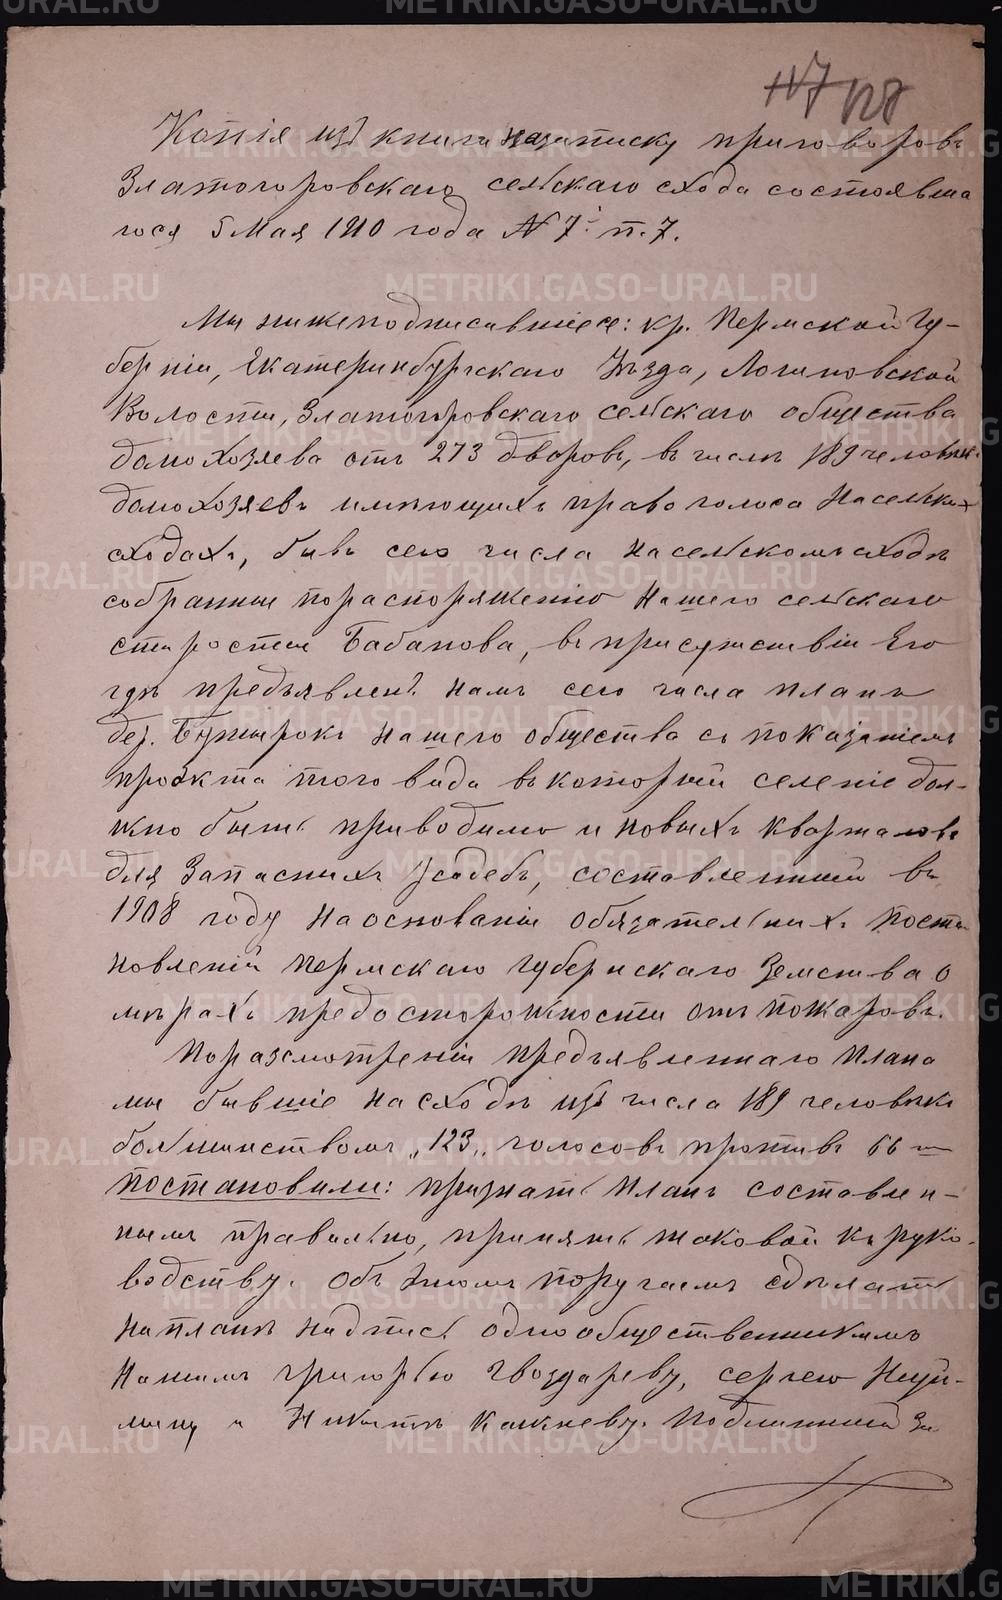 117 128
Копія изъ книги на записку приговоровъ
Златогоровскаго сельскаго схода состоявша
гося 5 Мая 1910 года № 7й п. 7.
Мы нижеподписавшіеся: кр. Пермской Гу-
берніи, Екатеринбургскаго Уѣзда, Логиновской
Волости, Златогоровскаго сельскаго общества
домохозяева отъ 273 дворовъ, въ числѣ 189 человѣкъ
домохозяевъ имѣющихъ право голоса на сельских
сходахъ, бывъ сего числа на сельскомъ сходѣ
собранные по распоряженію нашего сельскаго
старосты Бабанова, въ присутствіи Его
гдѣ предъявленъ намъ сего числа планъ
дер. нашего общества съ показаніемъ
проэкта того вида въ который селеніе дол-
жно быть приводимо и новыхъ кварталовъ
для запасныхъ усадебъ, составленный въ
1908 году на основаніи обязательныхъ поста
новленій Пермскаго Губернскаго Земства о
мѣрахъ предосторожности отъ пожаровъ.
По разсмотреніи предъявленнаго плана
мы бывшіе на сходѣ изъ числа 189 человѣкъ
большинствомъ „123„ голосовъ противъ 66 и
постановили: признать планъ составлен-
нымъ правильно, принять таковой къ руко-
водству. Объ этомъ поручаемъ сдѣлать
на планѣ надпись однообщественникамъ
нашимъ Григорью Гвоздареву, Сергею
и Никитѣ Подлинный за